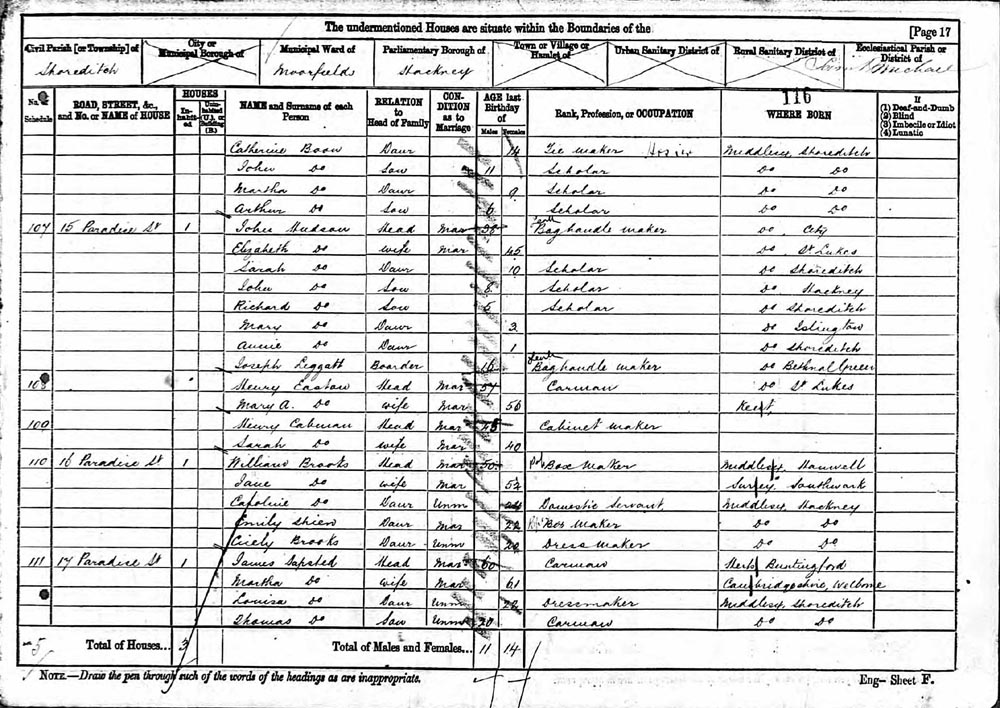 The undermentioned Houses are situate within the Boundaries of the
[Page 17
Civil Parish [or Township] of City or Municipal Borough of Municipal Ward of Parliamentary Borough of Town or Village or Hamlet of Urban Sanitary District of Rural Sanitary District of Ecclesiastical Parish or District of
Shoreditch Moorfields Hackney Michael
116
No. of Schedule ROAD, STREET, &c., and No. or NAME of HOUSE HOUSES Inhabited Uninhabited (U.), or Building (B.) NAME and Surname of each Person RELATION to Head of Family CONDITION as to Marriage AGE last Birthday of Males Females Rank, Profession, or OCCUPATION WHERE BORN If (1) Deaf-and-Dumb (2) Blind (3) Imbecile or Idiot (4) Lunatic
Catherine Boon Daur 14 Tie maker Hosier Middlesex, Shoreditch
John Do Son 11 Scholar Do Do
Martha Do Daur 9 Scholar Do Do
Arthur Do Son 6 Scholar Do Do
107 15 Paradise St 1 John Hudson Head Mar 38 Bag handle maker Do City
Elizabeth Do Wife Mar 45 Do St Lukes
Sarah Do Daur 10 Scholar Do Shoreditch
John Do Son 8 Scholar Do Hackney
Richard Do Son 5 Scholar Do Shoreditch
Mary Do Daur 3 Do Islington
Annie Do Daur 1 Do Shoreditch
Joseph Leggatt Boarder 16 Bag handle maker Do Bethnal Green
108 Henry Easton Head Mar 57 Carman Do St Lukes
Mary A. Do Wife Mar 56 Kent
109 Henry Cabman Head Mar 45 Cabinet maker
Sarah Do Wife Mar 40
110 16 Paradise St 1 William Brooks Head Mar 50 Box Maker Middlesex, Hanwell
Jane Do Wife Mar 52 Surrey Southwark
Caroline Do Daur Unm 24 Domestic Servant Middlesex, Hackney
Emily Shien Daur Mar 22 Box Maker Do Do
Cicely Brooks Daur Unm 20 Dress Maker Do Do
111 17 Paradise St 1 James Sapsted Head Mar 60 Carman Herts Buntingford
Martha Do Wife Mar 61 Cambridgeshire, Welbome
Louisa Do Daur Unm 22 Dressmaker Middlesex, Shoreditch
Thomas Do Son Unm 20 Carman Do Do
5 Total of Houses... 3 Total of Males and Females... 11 14
NOTE.—Draw the pen through such of the words of the headings as are inappropriate.
Eng- Sheet F.